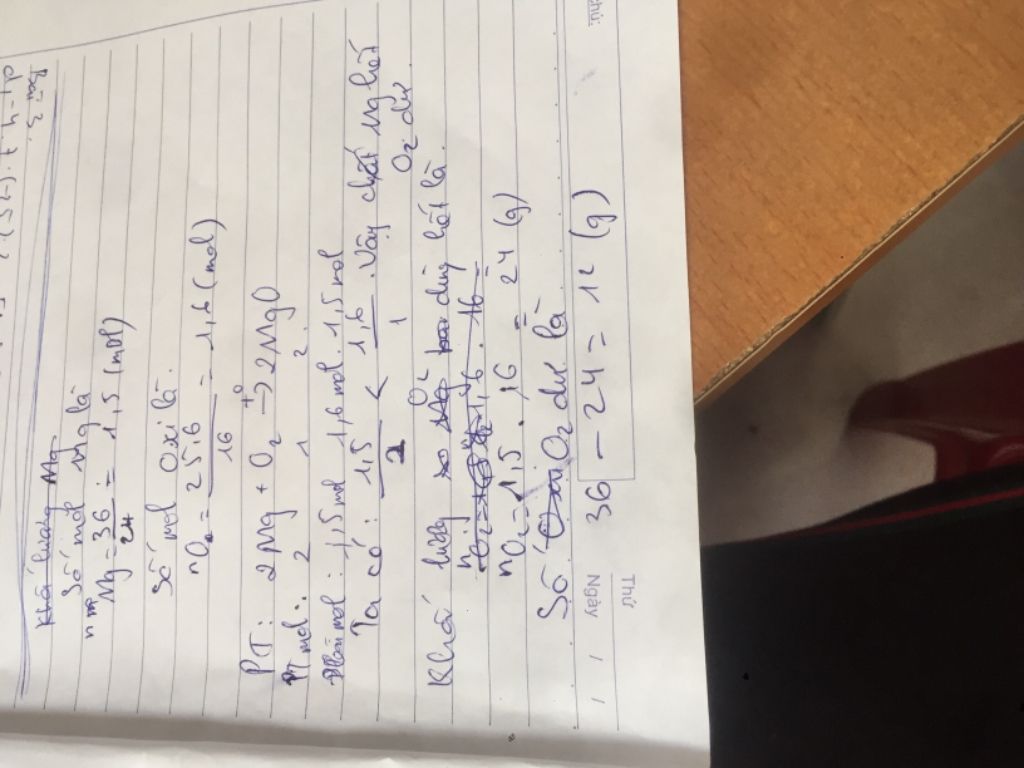 Bài 3
Khối lượng Mg
Số mol Mg là
n Mg = 36 / 24 = 1,5 (mol)
Số mol Oxi là.
nO₂ = 25,6 / 16 = 1,6 (mol)
PT: 2Mg + O₂ →t° 2MgO
PT mol: 2 1 2
1,5 mol 1,6 mol. 1,5 mol
Ta có: 1,5 / 2 < 1,6 / 1 . Vậy chất Mg hết
O₂ dư.
lượng O₂ dùng hết là.
nO₂ = 1,5 . 16 = 24 (g)
Số O₂ dư là
36 - 24 = 12 (g)
Thứ
Ngày / /